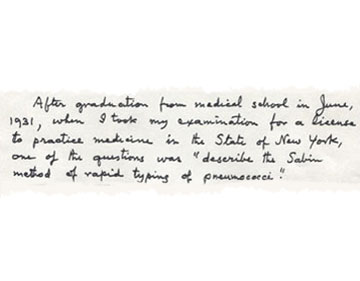 After graduation from medical school in June,
1931, when I took my examination for a license
to practice medicine in the State of New York,
one of the questions was "describe the Sabin
method of rapid typing of pneumococci."